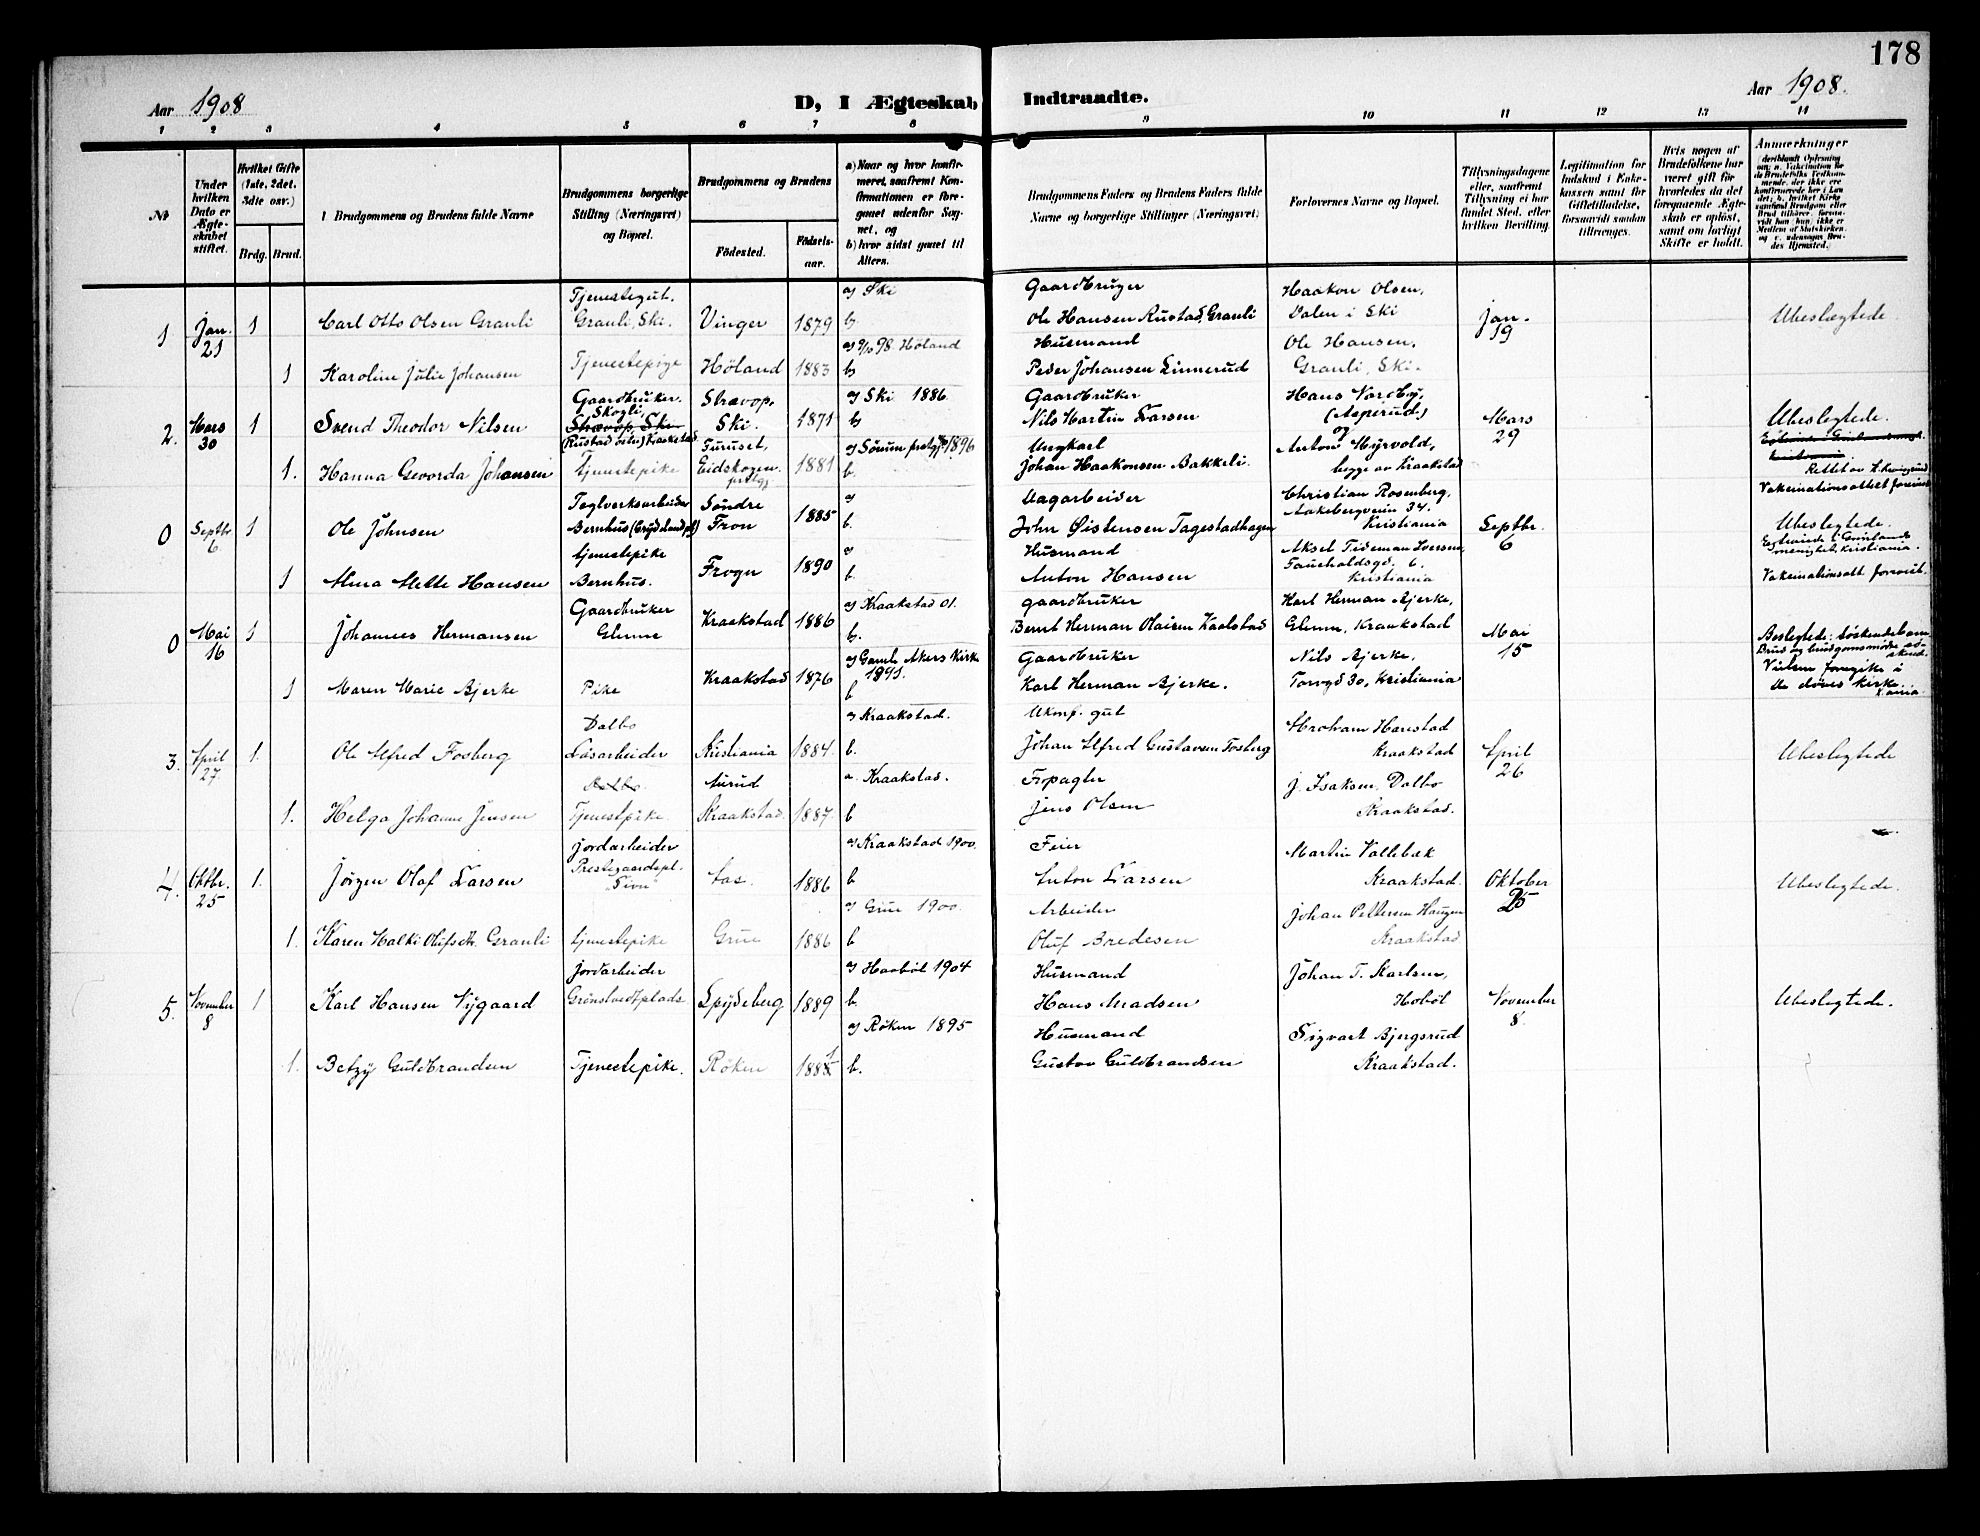 178
Aar 1908
D, I Ægteskab Indtraadte.
Aar 1908.
1 2 3 4 5 6 7 8 9 10 11 12 13 14
№
Under hvilken Dato er Ægteskabet stiftet.
Hvilket Gifte (1ste, 2det, 3die osv.)
Brdg. Brud.
Brudgommens og Brudens fulde Navne
Brudgommens borgerlige Stilling (Næringsvei) og Bopæl.
Brudgommens og Brudens
Födested.
Födselsaar.
a) Naar og hvor konfirmeret, saafremt Konfirmationen er foregaaet udenfor Sognet, og
b) hvor sidst gaaet til Alters.
Brudgommens Faders og Brudens Faders fulde Navne og borgerlige Stillinger (Næringsvei)
Forlovernes Navne og Bopæl.
Tillysningsdagene eller, saafremt Tillysning ei har fundet Sted, efter hvilken Bevilling.
Legitimation for Indskud i Enkekassen samt for Giftetilladelse, forsaavidt saadan tiltrænges.
Hvis nogen af Brudefolkene har været gift før hvorledes da det foregaaende Ægteskab er opløst, samt om lovligt Skifte er holdt.
Anmerkninger
Tjenestegut. a) Ski Gaardbruger Haakon Olsen,
1 Jan. 21 1 Carl Otto Olsen Granli Granli, Ski. Vinger 1879 b) Ole Hansen Rustad, Granli Valen i Ski Jan. 19 Ubeslægtede
a) 9/10 98. Höland Husmand Ole Hansen,
1 Karoline Julie Johansen Tjenestepige Höland 1883 b) Peder Johansen Linnerud Granli, Ski.
Gaardbruker. Skogli, Stravop, a) Ski 1886 Gaardbruker Hans Nordby,
2. Mars 30 1 Svend Theodor Nilsen Stravop, Ski Ski. 1871 b) Nils Martin Larsen (Asperud.) Mars 29 Ubeslegtede.
(Rustad östre) Kraakstad. Furuset, a) Sörum prstgj. 1896 Ungkarl og Anton Myrvold,
1. Hanna Gevorda Johansen Tjenestepike Eidskogen prstgj. 1881 b. Johan Haakonsen Bakkeli. begge av Kraakstad
Teglverksarbeider Söndre a) Dagarbeider Christian Rosenberg, Vakcinationsattest forevist
0 Septbr 6 1 Ole Johnsen Bernhus Fron 1885 b. John Øistensen Tagestadhagen Aakebergveien 34. Kristiania Septbr. 6 Ubeslegtede.
tjenestepike a) Husmand Aksel Tideman Iversen,
1 Alma Mette Hansen Bernhus. Frogn 1890 b. Anton Hansen 6. Kristiania Vakcinationsatt forevist.
Gaardbruker a) Kraakstad 01. gaardbruker Karl Herman Bjerke,
0 Mai 16 1 Johannes Hermansen Glenne Kraakstad 1886 b. Bernt Herman Olaisen Kaalstad Glenne, Kraakstad Mai 15 Beslegtede: söskendebarn
a) Gamle Akers Kirke 1891. Gaardbruker Nils Bjerke,
1 Maren Marie Bjerke Pike Kraakstad 1876 b Karl Herman Bjerke. Torvgd 30, Kristiania Vielsen foregikk i
Dalbo a) Kraakstad. Ukonf. gut Abraham Harestad
3. April 27 1. Ole Alfred Fosberg Lösarbeider Kristiania 1884. b. Johan Alfred Gustavsen Fosberg Kraakstad April 26 Ubeslegtede
Dalbo. Aurud a. Kraakstad. Forpagter J. Isaksen, Dalbo
1. Helga Johanne Jensen Tjenestpike Kraakstad. 1887. b Jens Olsen Kraakstad.
jordarbeider a) Kraakstad 1900. Feier Martin Vallebæk
4. Oktbr. 25 1. Jörgen Olaf Larsen Prestegaardspl. Aas. 1886 b Anton Larsen Kraakstad. Oktober 25 Ubeslegtede.
a) Grue 1900. Arbeider Johan Pettersen Haugen
1. Karen Halki Olufsdtr. Granli tjenestepike Grue 1886 b Oluf Bredesen Kraakstad
jordarbeider a) Haaböl 1904 Husmand Johan T. Karlsen,
5. November 8 1 Karl Hansen Nygaard Grönstvedtplads Spydeberg 1889 b. Hans Madsen Hoböl November 8. Ubeslegtede.
a) Röken 1895 Husmand Sigvart Bjergsrud
1. Betzy Guldbrandsen Tjenestepike. Röken 1881 b. Gustav Guldbrandsen Kraakstad.